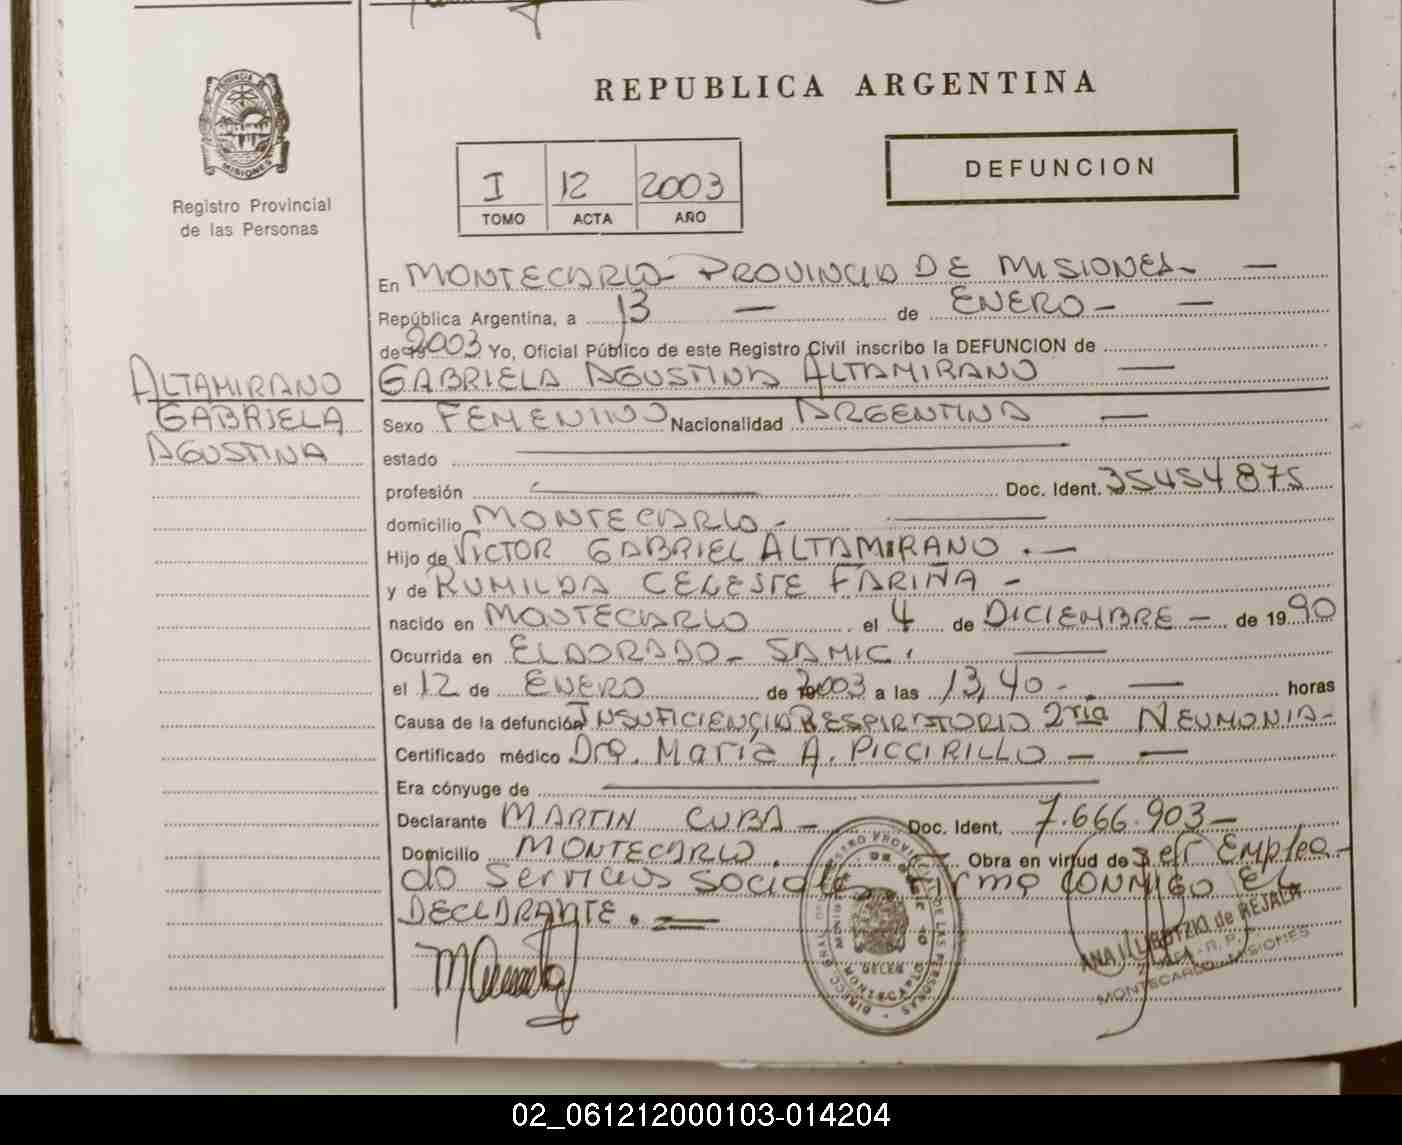 REPUBLICA ARGENTINA
DEFUNCION
I 12 2003
TOMO ACTA AÑO
MISIONES
Registro Provincial
de las Personas
En MONTECARLO - PROVINCIA DE MISIONES - —
República Argentina, a 13 — de ENERO - —
de 2003 Yo, Oficial Público de este Registro Civil inscribo la DEFUNCION de
GABRIELA AGUSTINA ALTAMIRANO —
ALTAMIRANO
GABRIELA
AGUSTINA
Sexo FEMENINO Nacionalidad ARGENTINA —
estado —
profesión — Doc. Ident. 35454875
domicilio MONTECARLO - —
Hijo de VICTOR GABRIEL ALTAMIRANO . —
y de RUMILDA CELESTE FARIÑA -
nacido en MONTECARLO el 4 de DICIEMBRE - de 1990
Ocurrida en ELDORADO - SAMIC . —
el 12 de ENERO de 2003 a las 13,40 - . — horas
Causa de la defunción INSUFICIENCIA RESPIRATORIA 2ria NEUMONIA -
Certificado médico Dra. María A. PICCIRILLO - —
Era cónyuge de —
Declarante MARTIN CUBA - Doc. Ident. 7.666.903 -
Domicilio MONTECARLO . — Obra en virtud de ser Emplea-
do Servicios Sociales Firma CONMIGO EL
DECLARANTE . =
ANA de REJALA
MONTECARLO - MISIONES
02_061212000103-014204